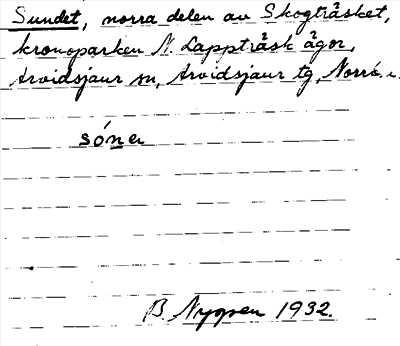 Sundet, norra delen av Skogträsket,
kronoparken N. Lappträsk ägor,
Arvidsjaur sn, Arvidsjaur tg, Norrb. l.
sóner
B. Nygren 1932.